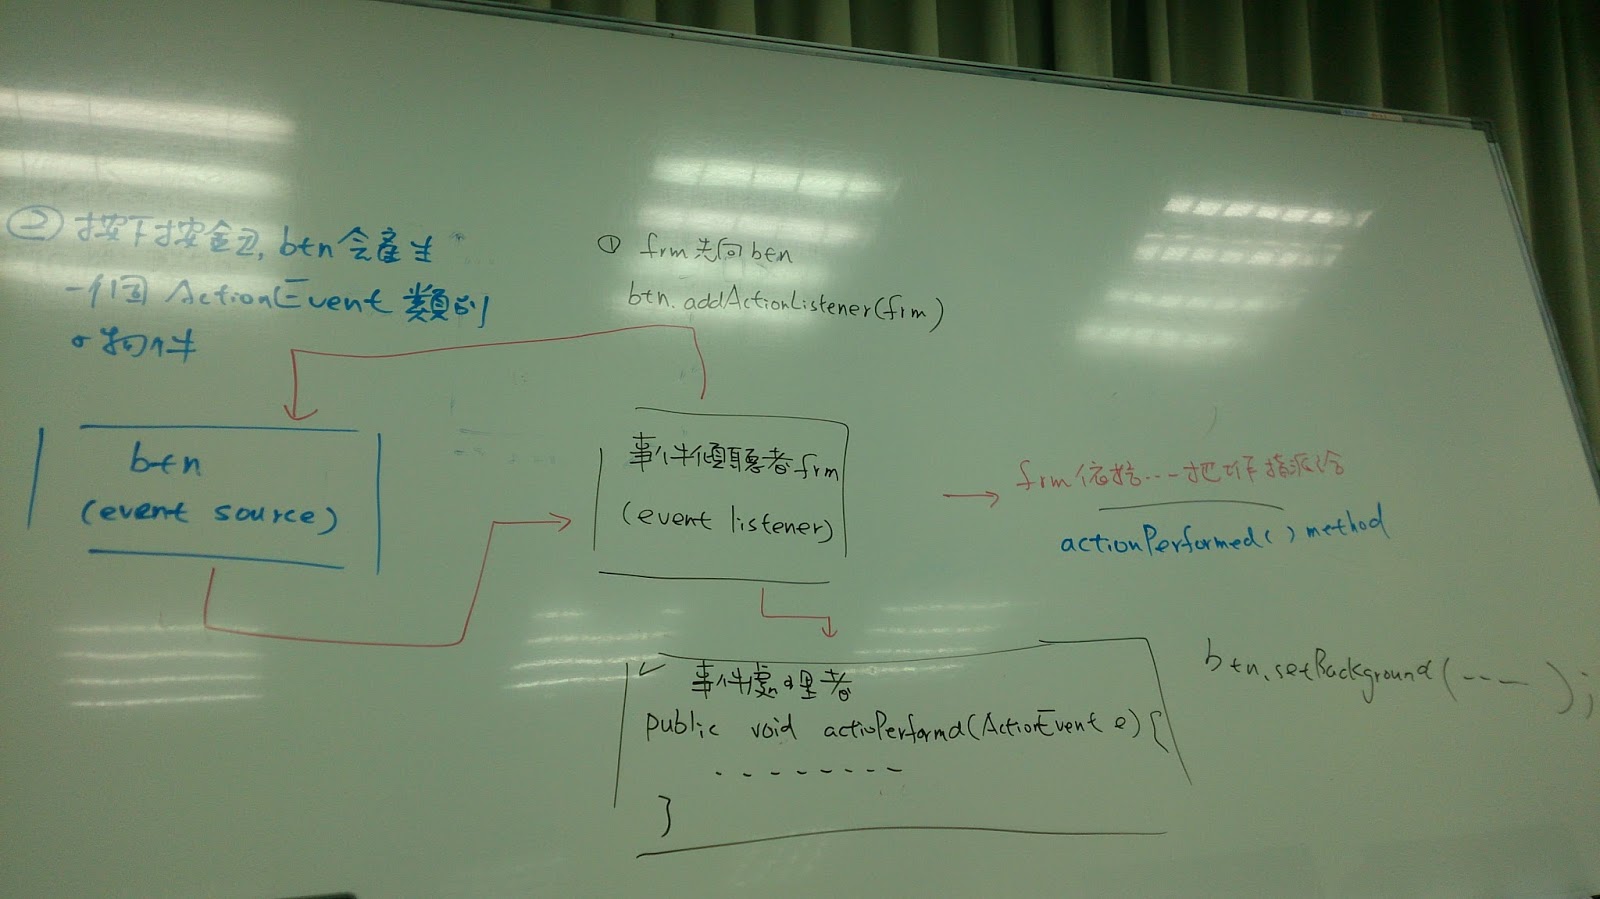 ② 按下按鈕, btn 会產生
一個 ActionEvent 類別
物件
① frm 先向 btn
btn.addActionListener(frm)
btn
(event source)
事件傾聽者 frm
(event listener)
frm 依 ... 把 指派給
actionPerformed() method
✓ 事件處理者
public void actioPerformd(ActionEvent e) {
- - - - - - - -
}
btn.setBackground(---);